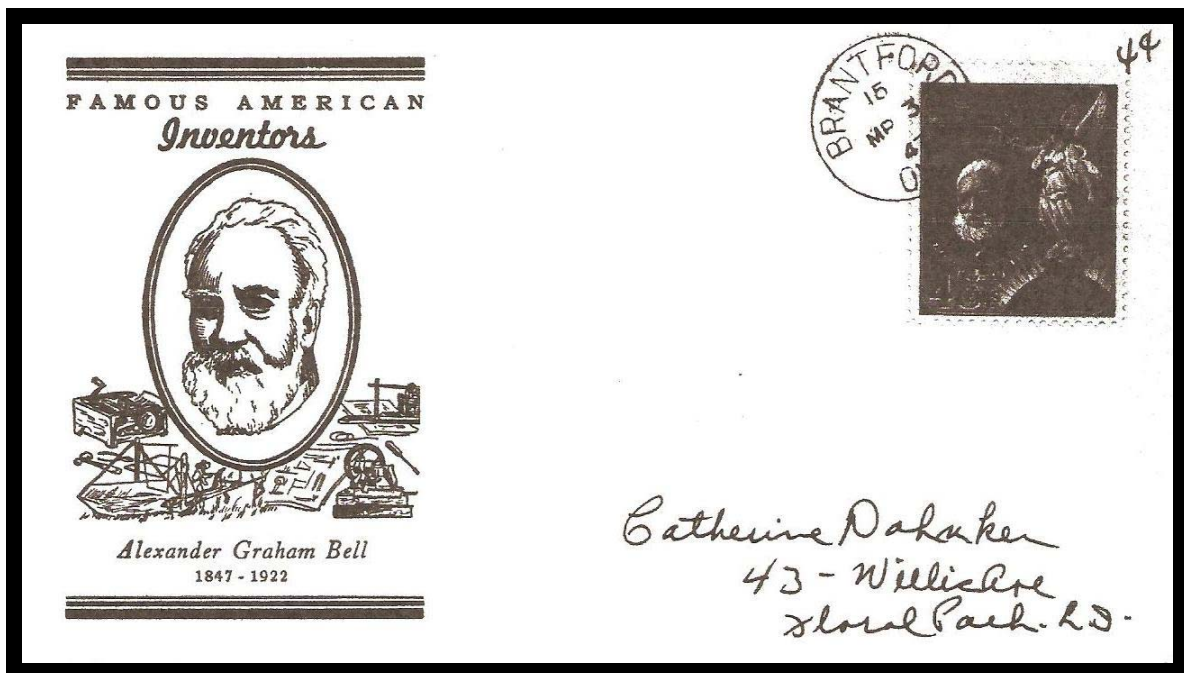 FAMOUS AMERICAN
Inventors
Alexander Graham Bell
1847 - 1922
BRANTFORD
15
MR 3
4¢
Catherine
43 - Willis Ave
Floral Park. L.I.